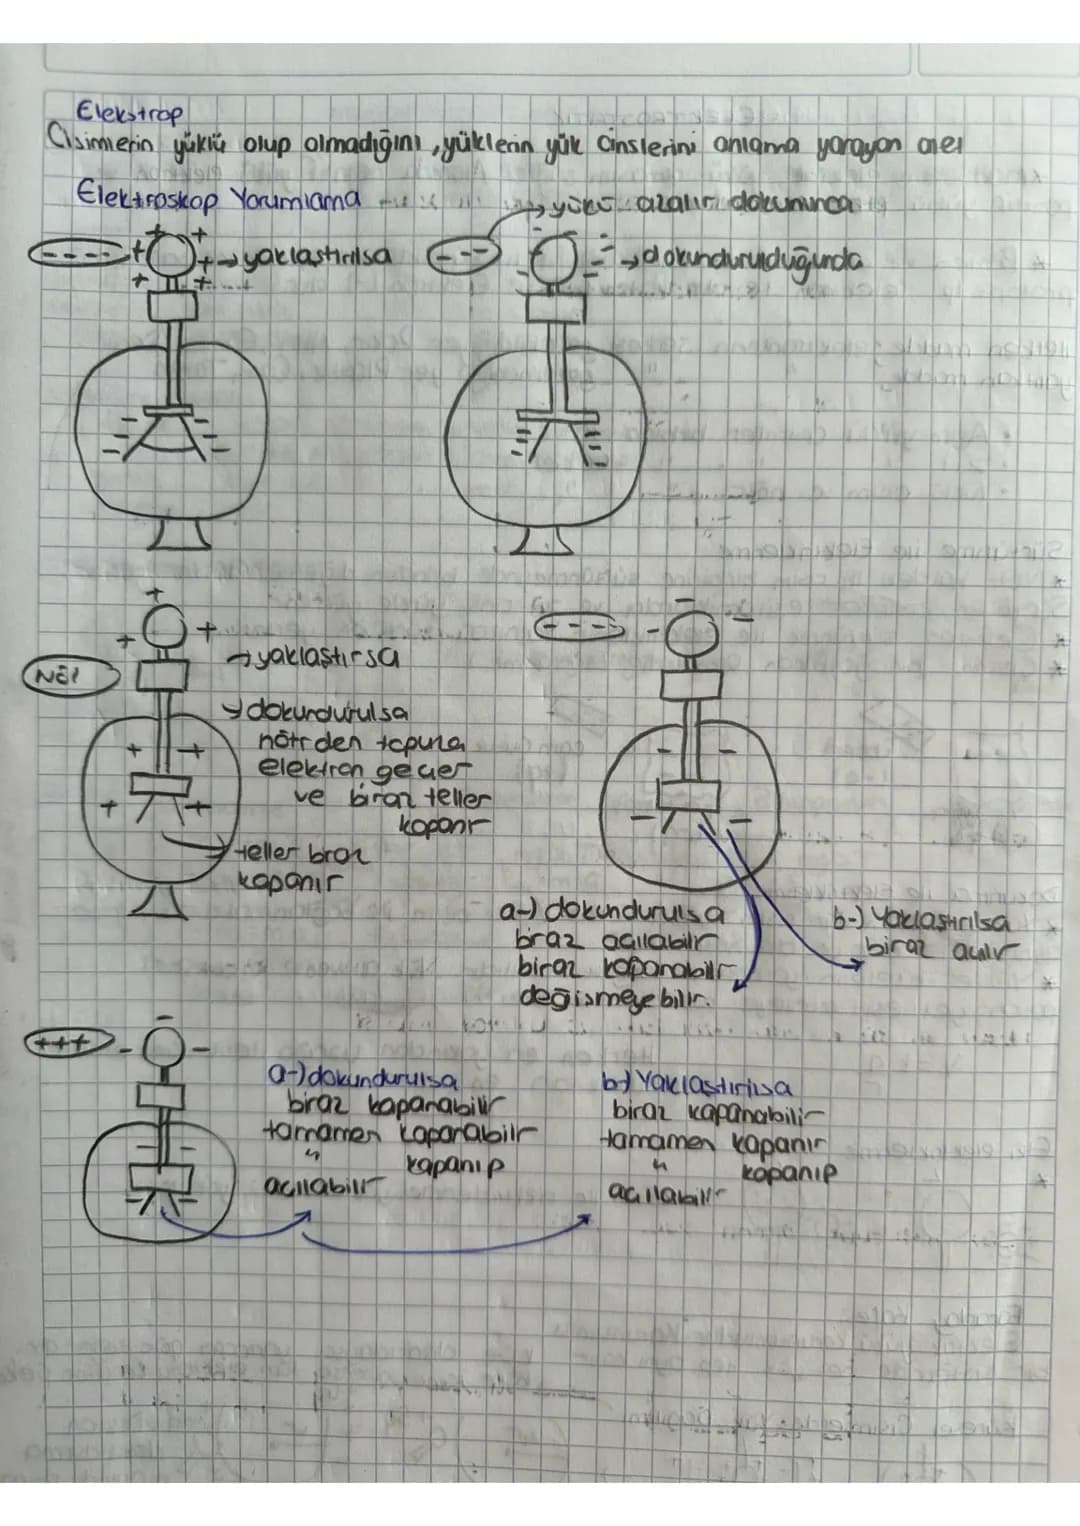 Elekstrop
Cisimlerin yüklü olup olmadığını, yüklerin yük cinslerini anlama yarayan araç
Elektroskop Yorumlama
yükü azalır dokununca
- - - -
+ + + + + + +
→ yaklaştırılsa
- - -
→ dokundurulduğunda
+ + +
Nöt
→ yaklaştırsa
→ dokundurulsa
nötrden topuza
elektron geçer
ve biraz teller
kapanır
teller biraz
kapanır
- - - -
a-) dokundurulsa
biraz açılabilir
biraz kapanabilir
değişmeyebilir.
b-) Yaklaştırılsa
biraz açılır
+++
a-) dokundurulsa
biraz kapanabilir
tamamen kapanabilir
" kapanıp
açılabilir
b-) Yaklaştırılsa
biraz kapanabilir
tamamen kapanır
" kapanıp
açılabilir